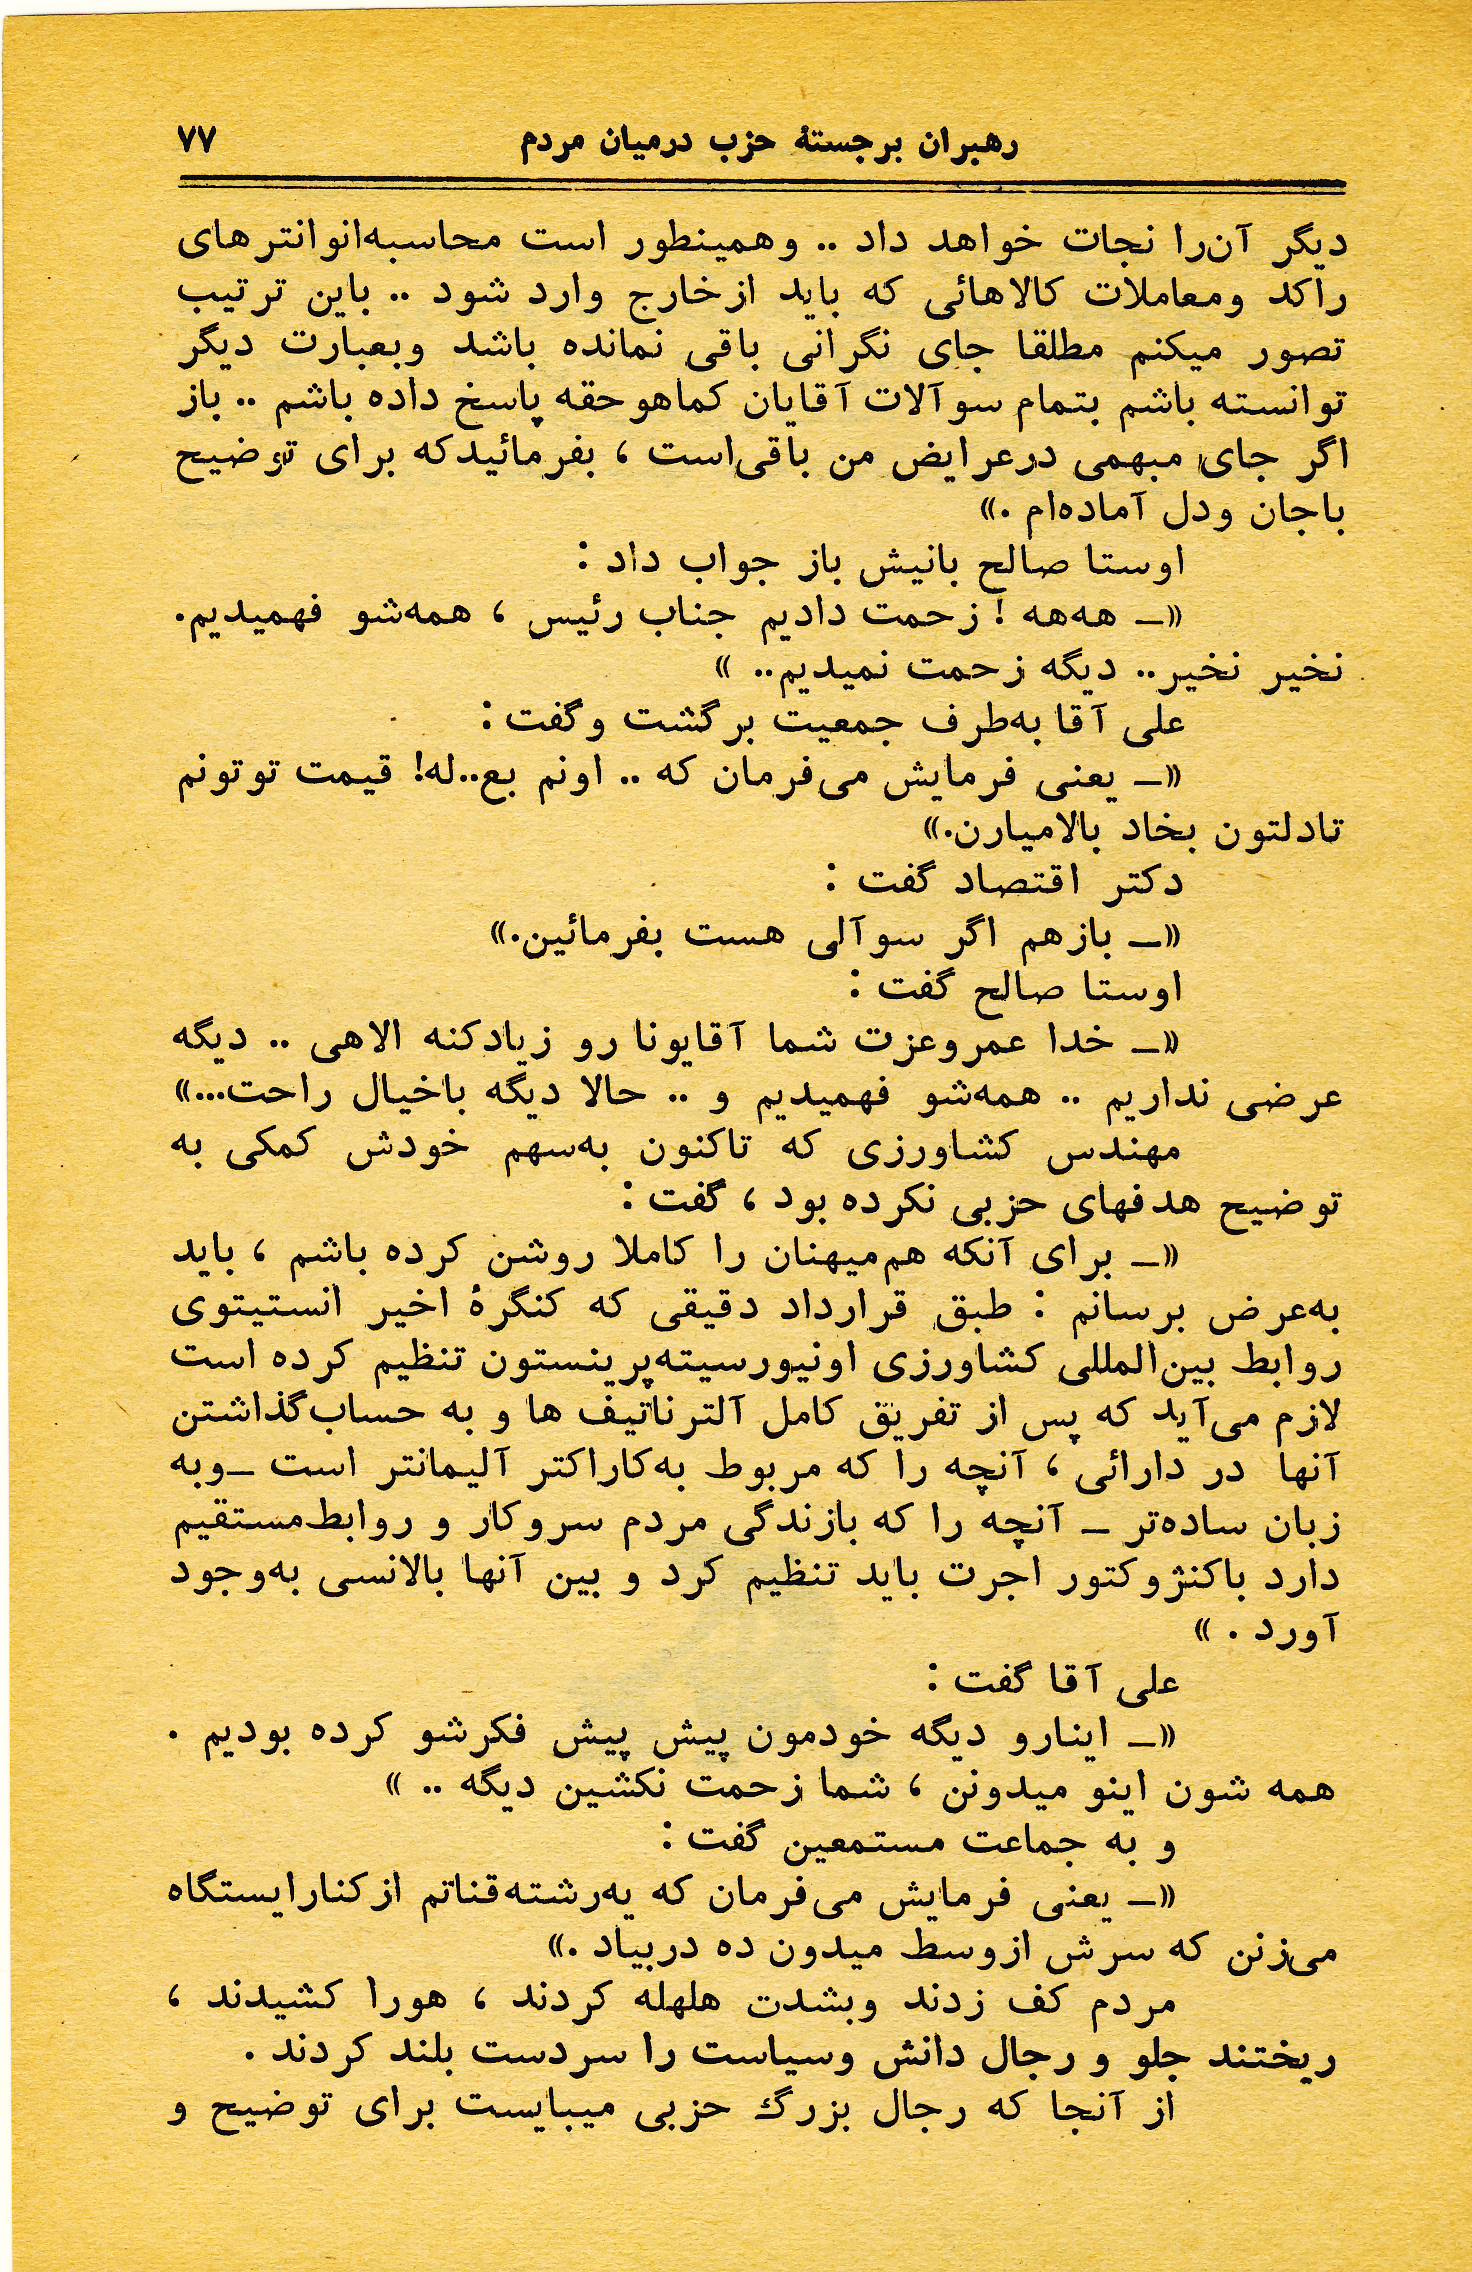 رهبران برجستهٔ حزب درمیان مردم ۷۷
دیگر آن‌را نجات خواهد داد .. وهمینطور است محاسبه‌انوانترهای
راکد ومعاملات کالاهائی که باید ازخارج وارد شود .. باین ترتیب
تصور میکنم مطلقا جای نگرانی باقی نمانده باشد وبعبارت دیگر
توانسته باشم بتمام سوآلات آقایان کماهوحقه پاسخ داده باشم .. باز
اگر جای مبهمی درعرایض من باقی‌است ، بفرمائیدکه برای توضیح
باجان ودل آماده‌ام .»
اوستا صالح بانیش باز جواب داد :
«ـ هه‌هه ! زحمت دادیم جناب رئیس ، همه‌شو فهمیدیم.
نخیر نخیر.. دیگه زحمت نمیدیم.. »
علی آقا به‌طرف جمعیت برگشت وگفت :
«ـ یعنی فرمایش می‌فرمان که .. اونم بع..له! قیمت توتونم
تادلتون بخاد بالامیارن.»
دکتر اقتصاد گفت :
«ـ بازهم اگر سوآلی هست بفرمائین.»
اوستا صالح گفت :
«ـ خدا عمروعزت شما آقایونا رو زیادکنه الاهی .. دیگه
عرضی نداریم .. همه‌شو فهمیدیم و .. حالا دیگه باخیال راحت...»
مهندس کشاورزی که تاکنون به‌سهم خودش کمکی به
توضیح هدفهای حزبی نکرده بود ، گفت :
«ـ برای آنکه هم‌میهنان را کاملا روشن کرده باشم ، باید
به‌عرض برسانم : طبق قرارداد دقیقی که کنگرهٔ اخیر انستیتوی
روابط بین‌المللی کشاورزی اونیورسیته‌پرینستون تنظیم کرده است
لازم می‌آید که پس از تفریق کامل آلترناتیف ها و به حساب‌گذاشتن
آنها در دارائی ، آنچه را که مربوط به‌کاراکتر آلیمانتر است ـ‌وبه
زبان ساده‌تر ـ آنچه را که بازندگی مردم سروکار و روابط‌مستقیم
دارد باکنژوکتور اجرت باید تنظیم کرد و بین آنها بالانسی به‌وجود
آورد . »
علی آقا گفت :
«ـ اینارو دیگه خودمون پیش پیش فکرشو کرده بودیم .
همه شون اینو میدونن ، شما زحمت نکشین دیگه .. »
و به جماعت مستمعین گفت :
«ـ یعنی فرمایش می‌فرمان که یه‌رشته‌قناتم ازکنارایستگاه
می‌زنن که سرش ازوسط میدون ده دربیاد .»
مردم کف زدند وبشدت هلهله کردند ، هورا کشیدند ،
ریختند جلو و رجال دانش وسیاست را سردست بلند کردند .
از آنجا که رجال بزرگ حزبی میبایست برای توضیح و